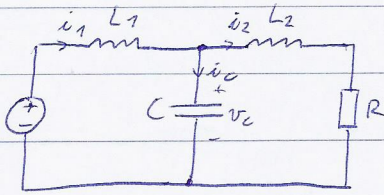 i1 L1 i2 L2
ic
+
C vc R
-
+
-